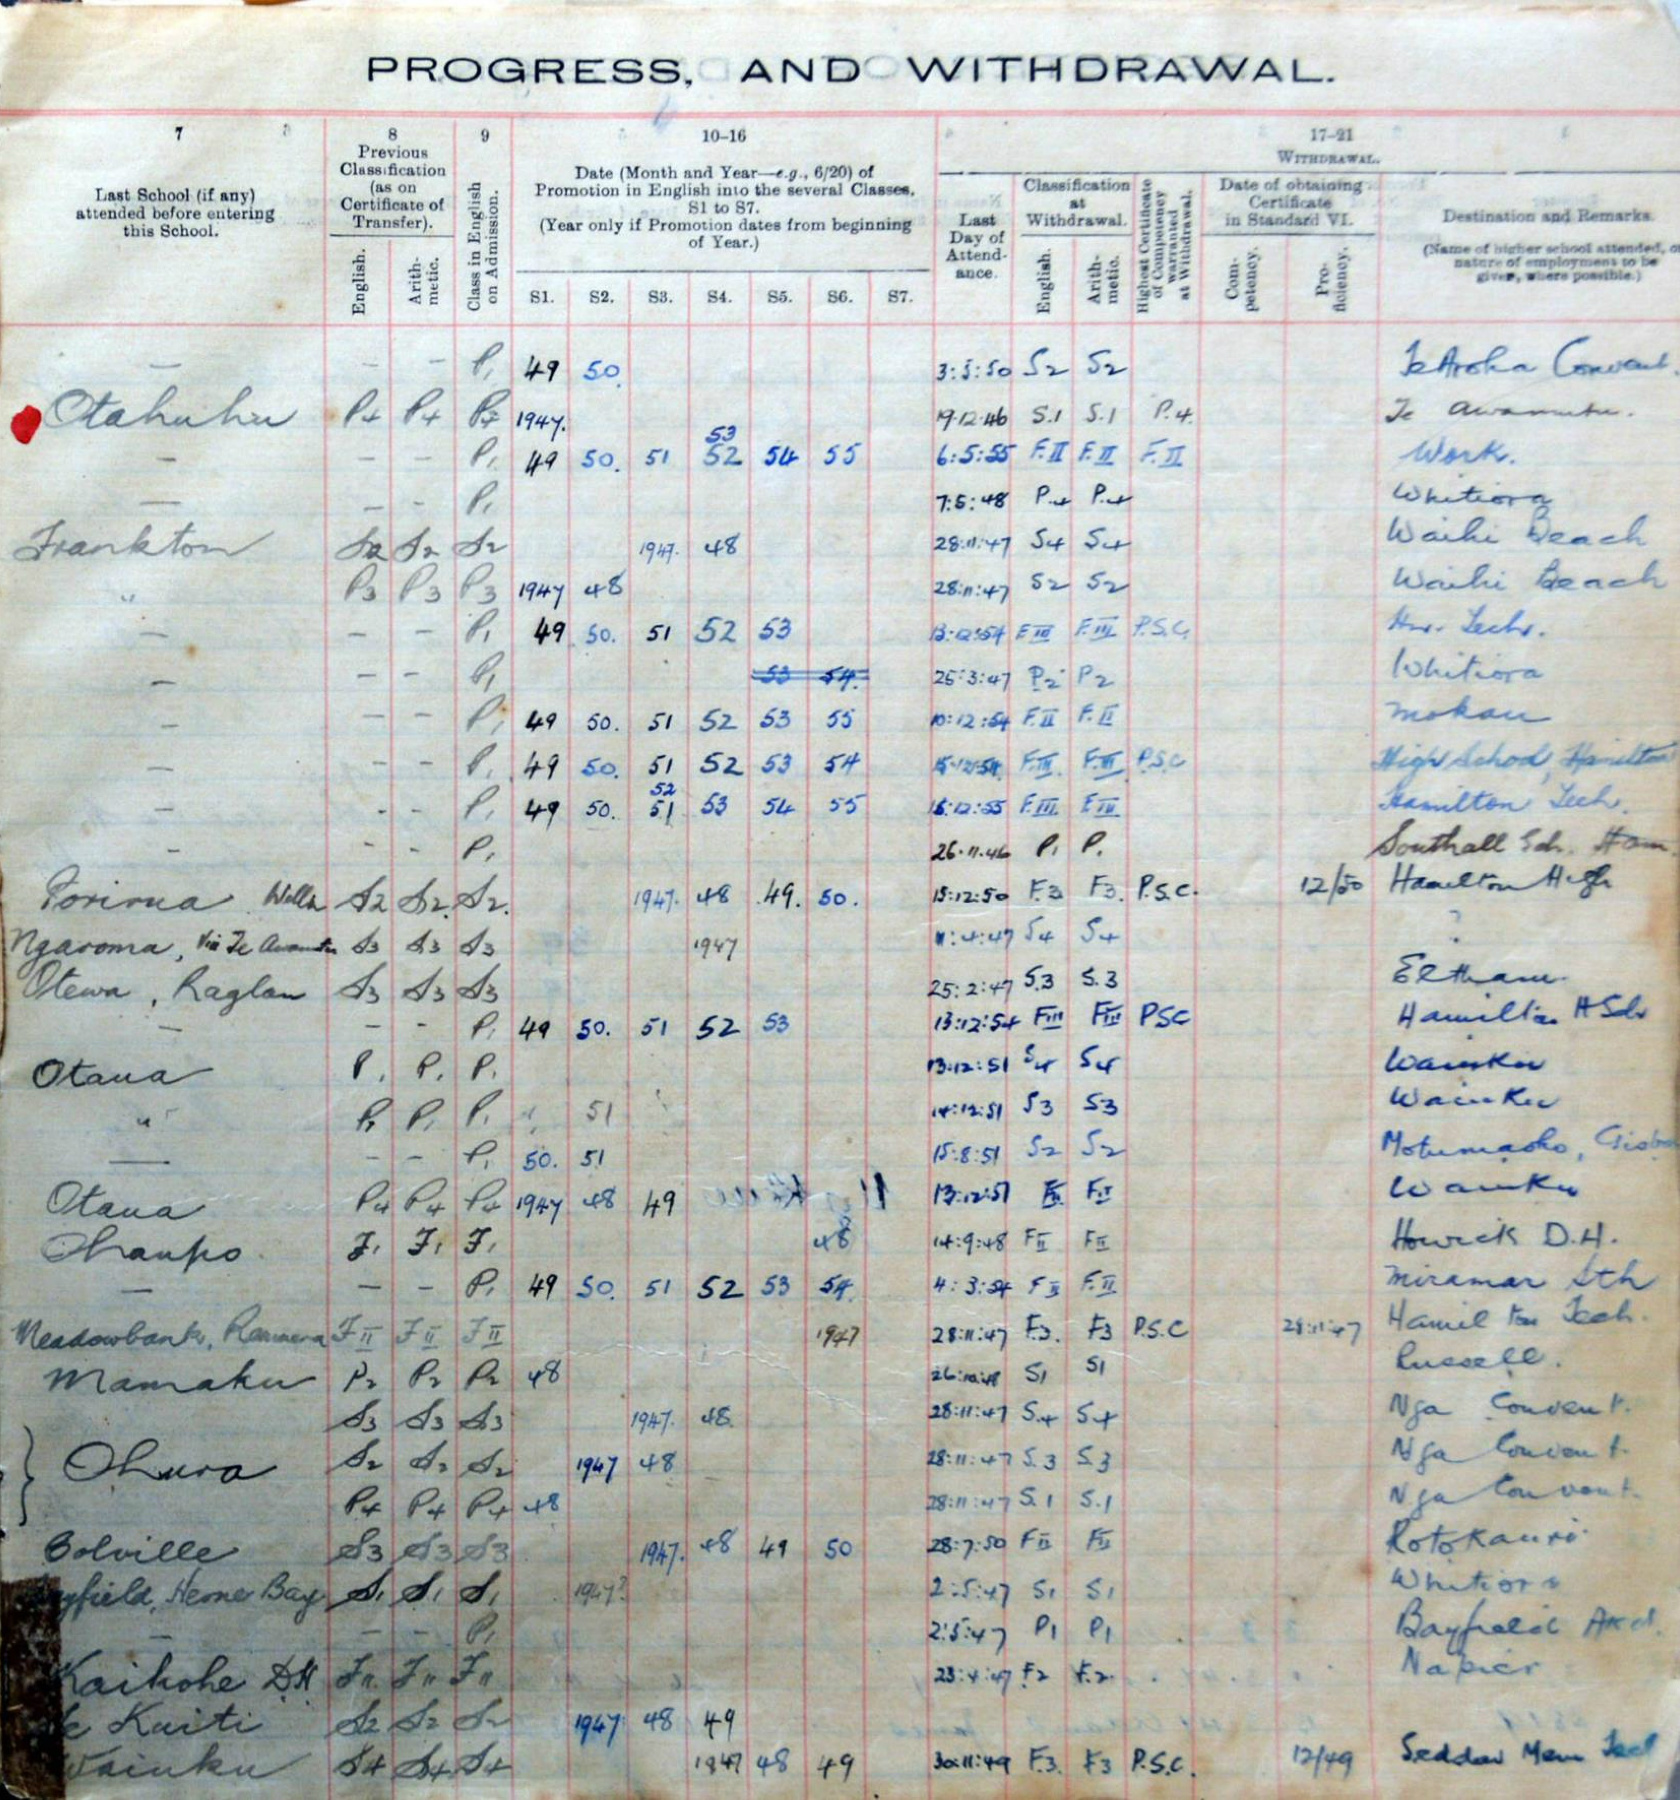 PROGRESS, AND WITHDRAWAL.
7 8 9 10-16 17-21
Last School (if any) attended before entering this School.
Previous Classification (as on Certificate of Transfer).
English. Arithmetic.
Class in English on Admission.
Date (Month and Year—e.g., 6/20) of Promotion in English into the several Classes, S1 to S7.
(Year only if Promotion dates from beginning of Year.)
S1. S2. S3. S4. S5. S6. S7.
WITHDRAWAL.
Last Day of Attendance.
Classification at Withdrawal.
English. Arithmetic.
Highest Certificate of Competency warranted at Withdrawal.
Date of obtaining Certificate in Standard VI.
Competency. Proficiency.
Destination and Remarks.
(Name of higher school attended, or nature of employment to be given, where possible.)
— — — P1 49 50. 3:5:50 S2 S2 Te Aroha Convent.
Otahuhu P4 P4 P4 1947. 19.12.46 S.1 S.1 P.4. Te Awamutu.
— — — P1 49 50. 51 53 52 54 55 6:5:55 F.II F.II F.II Work.
— — — P1 7:5:48 P.4 P.4 Whitiora
Frankton S2 S2 S2 1947. 48 28:11:47 S4 S4 Waihi Beach
" P3 P3 P3 1947 48 28:11:47 S2 S2 Waihi Beach
— — — P1 49 50. 51 52 53 13:12:54 F III F.III P.S.C. Hn. Tech.
— — — P1 53 54. 25:3:47 P2 P2 Whitiora
— — — P1 49 50. 51 52 53 55 10:12:54 F.II F.II Mokau
— — — P1 49 50. 51 52 53 54 15:12:54 F.III F.III P.S.C High School, Hamilton
— - - P1 49 50. 52 51 53 54 55 16:12:55 F.III F.III Hamilton Tech.
- - - P1 26.11.46 P1 P. Southall Sch. Ham
Porirua Welln S2 S2. S2. 1947. 48 49. 50. 15:12:50 F.3 F3. P.S.C. 12/50 Hamilton High
Ngaroma, Via Te Awamutu S3 S3 S3 1947 11:4:47 S4 S4 ?
Otewa, Raglan S3 S3 S3 25:2:47 S.3 S.3 Eltham.
— - - P1 49 50. 51 52 53 13:12:54 FIII FIII PSC Hamilton H Sch
Otaua P. P. P. 13:12:51 S4 S4 Waiuku
" P1 P1 P1 51 14:12:51 S3 S3 Waiuku
— - - P1 50. 51 15:8:51 S2 S2
Otaua P4 P4 P4 1947 48 49 13:12:51 FI FI Waiuku
Ohaupo. F1 F1 F1 48 14:9:48 FII FII Howick D.H.
— — - P1 49 50. 51 52 53 54. 4:3:54 F II F.II Miramar Sth
Meadowbank, Remuera F II F II F II 1947 28:11:47 F3. F3 P.S.C 28:11:47 Hamilton Tech.
Mamaku P2 P2 P2 48 26:10:48 S1 S1 Russell.
S3 S3 S3 1947. 48. 28:11:47 S4 S4 Nga Convent.
Ohura S2 S2 S2 1947 48 28:11:47 S.3 S.3 Nga Convent
P4 P4 P4 48 28:11:47 S.1 S.1 Nga Convent.
Colville S3 S3 S3 1947. 48 49 50 28:7:50 FII FII Rotokauri.
Bayfield, Herne Bay S1 S1 S1 1947? 2:5:47 S1 S1 Whitiora
— — - P1 2:5:47 P1 P1 Bayfield Akd.
Kaikohe DH F11 F11 F11 23:4:47 F2 F.2. Napier
Te Kuiti S2 S2 S2 1947 48 49
Waiuku S4 S4 S4 1947 48 49 30:11:49 F.3. F3 P.S.C. 12/49 Seddon Mem Tech